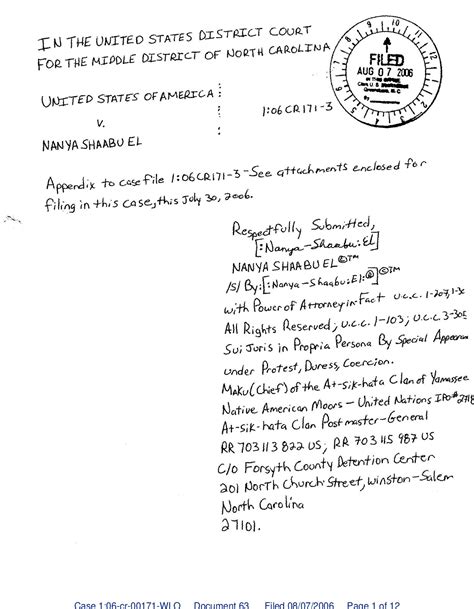 IN THE UNITED STATES DISTRICT COURT
FOR THE MIDDLE DISTRICT OF NORTH CAROLINA
FILED
AUG 07 2006
IN THIS OFFICE
Clerk U.S. District Court
Greensboro, N.C.
By
UNITED STATES OF AMERICA :
v.
1:06CR171-3
NANYA SHAABU EL
Appendix to case file 1:06CR171-3 - See attachments enclosed for
filing in this case, this July 30, 2006.
Respectfully Submitted,
[:Nanya-Shaabu:El]
NANYA SHAABU EL©™
/S/ By:[:Nanya-Shaabu:El:®]©™
with Power of Attorney-in-Fact U.C.C. 1-207, 1-30
All Rights Reserved; U.C.C. 1-103; U.C.C. 3-305
Sui Juris in Propria Persona By Special Appearan
under Protest, Duress, Coercion.
Maku (Chief) of the At-sik-hata Clan of Yamassee
Native American Moors - United Nations IPO# 2718
At-sik-hata Clan Postmaster-General
RR 703 113 822 US; RR 703 115 987 US
C/O Forsyth County Detention Center
201 North Church Street, Winston-Salem
North Carolina
27101.
Case 1:06-cr-00171-WLO Document 63 Filed 08/07/2006 Page 1 of 12